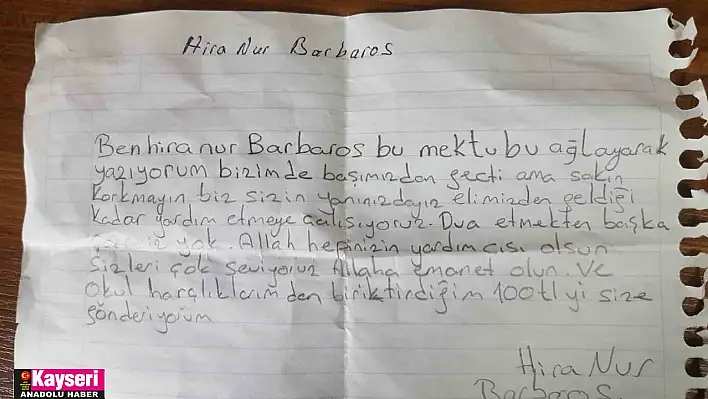 Hira Nur Barbaros
Ben hira nur Barbaros bu mektubu ağlayarak
yazıyorum bizimde başımızdan geçti ama sakın
korkmayın biz sizin yanınızdayız elimizden geldiği
kadar yardım etmeye çalışıyoruz. Dua etmekten başka
yok. Allah hepinizin yardımcısı olsun
sizleri çok seviyoruz Allaha emanet olun. Ve
okul harçlıklarımdan biriktirdiğim 100tl yi size
gönderiyorum
Hira Nur
Barbaros.
Kayseri
ANADOLU HABER